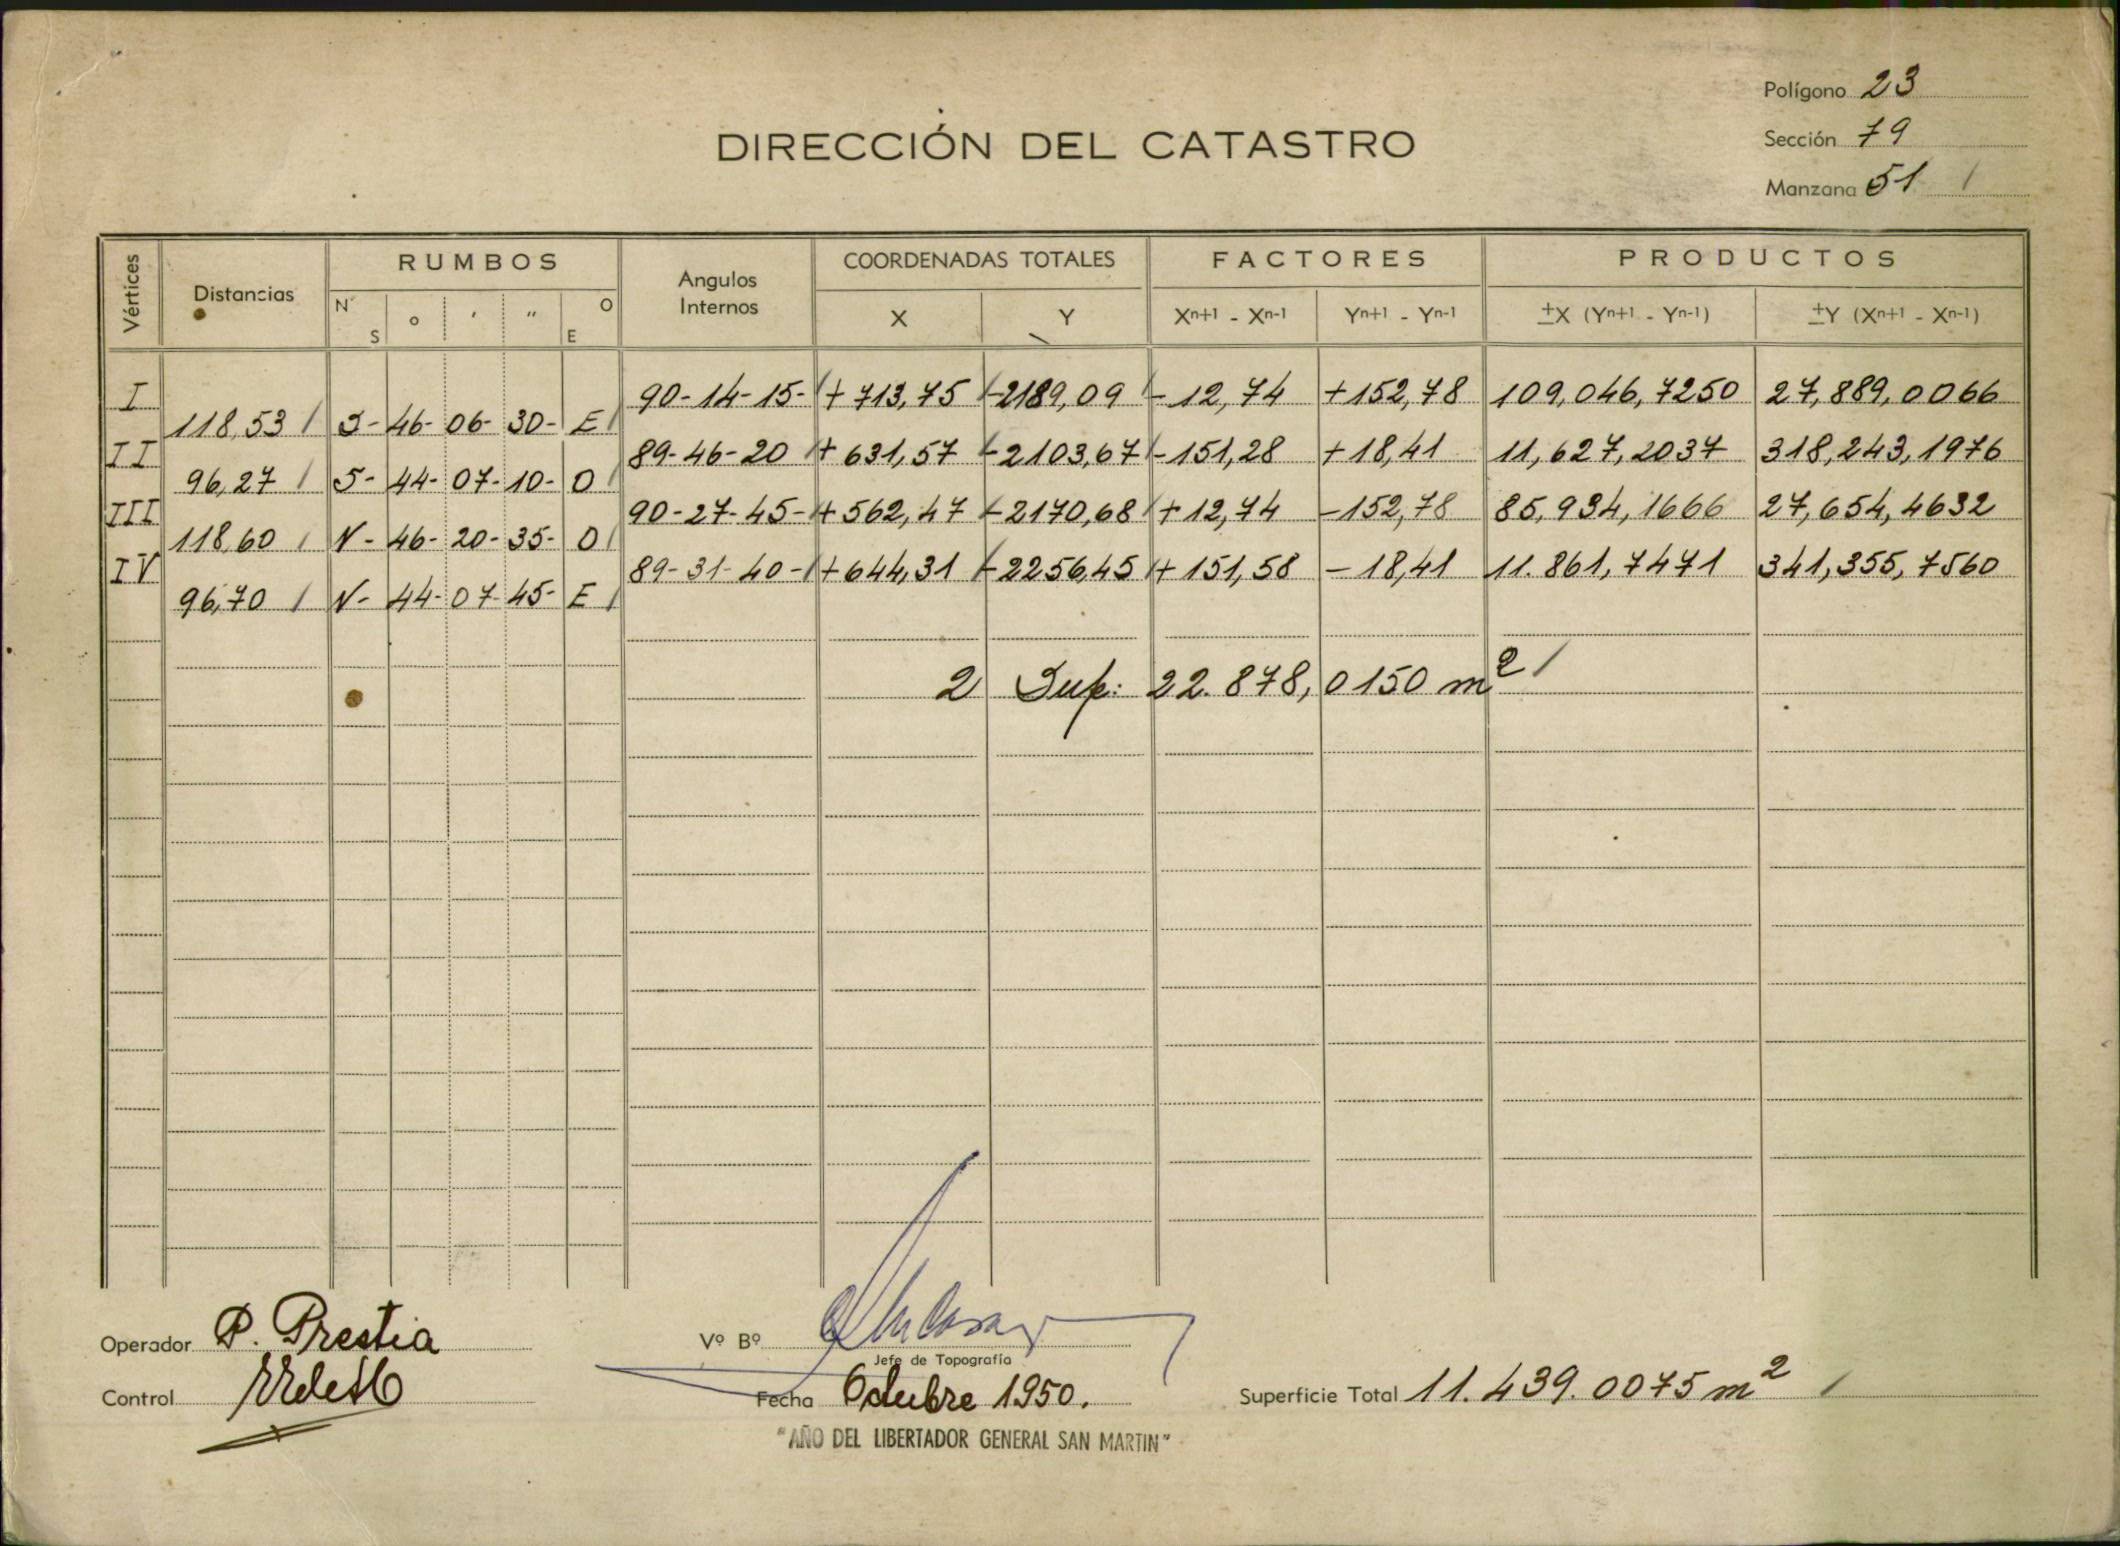 Polígono 23
DIRECCIÓN DEL CATASTRO
Sección 79
Manzana 51
Vértices Distancias RUMBOS Angulos Internos COORDENADAS TOTALES FACTORES PRODUCTOS
N S o ′ ″ O E X Y Xⁿ⁺¹ - Xⁿ⁻¹ Yⁿ⁺¹ - Yⁿ⁻¹ ±X (Yⁿ⁺¹ - Yⁿ⁻¹) ±Y (Xⁿ⁺¹ - Xⁿ⁻¹)
I 90-14-15- +713,75 -2189,09 -12,74 +152,78 109,046,7250 27,889,0066
118,53 S- 46- 06- 30- E
II 89-46-20 +631,57 -2103,67 -151,28 +18,41 11,627,2037 318,243,1976
96,27 S- 44- 07- 10- O
III 90-27-45- +562,47 -2170,68 +12,74 -152,78 85,934,1666 27,654,4632
118,60 N- 46- 20- 35- O
IV 89-31-40- +644,31 -2256,45 +151,58 -18,41 11.861,7471 341,355,7560
96,70 N- 44- 07- 45- E
2 Sup: 22.878,0150 m²
Operador P. Prestia
Vº Bº
Jefe de Topografía
Control
Fecha Octubre 1950.
Superficie Total 11.439.0075 m²
"AÑO DEL LIBERTADOR GENERAL SAN MARTIN"